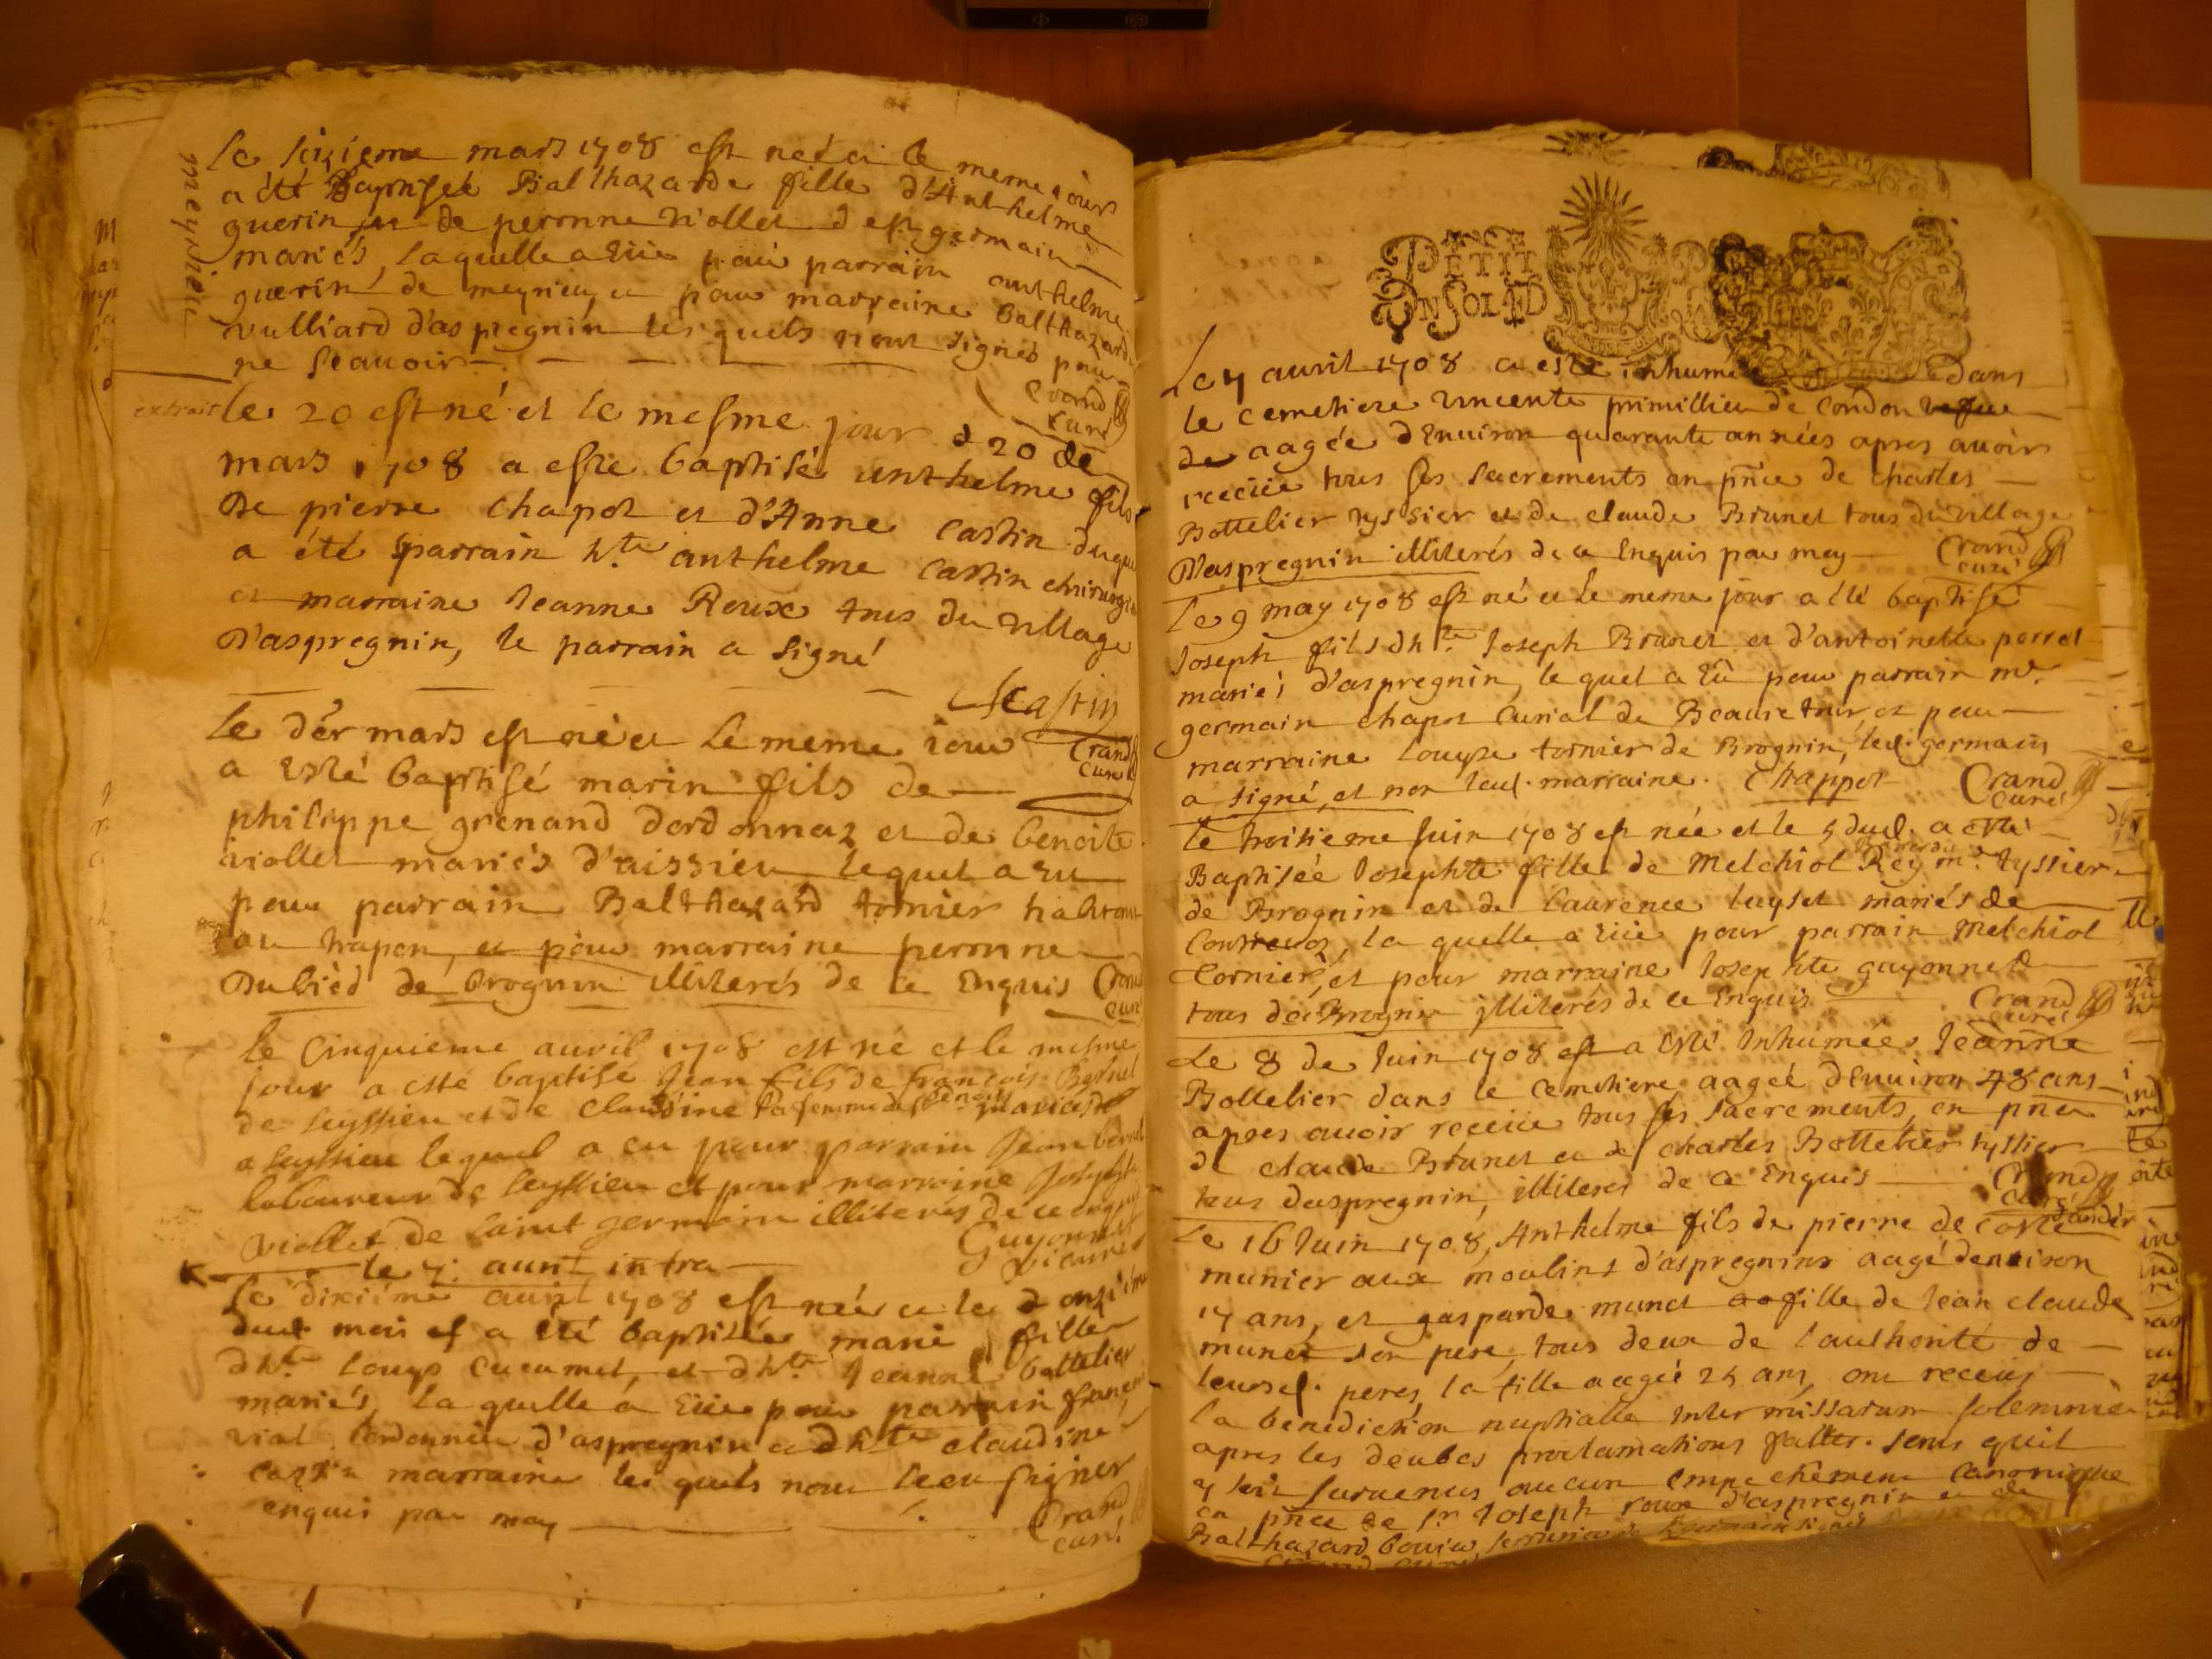 meyrieu
Le sizieme mars 1708 est née et le meme jour
a été Baptisée Balthazarde fille d'Anthelme
guerin et de peronne viollet d est germain
mariés, laquelle a eüe pour parrain anthelme
guerin de meyrieu, et pour marraine Balthazarde
vulliard d'aspregnin lesquels n'ont signés pour
ne scauoir
Crand
curé
extrait
le 20 est né et le mesme jour 20 de
mars 1708 a este baptisé anthelme fils
De pierre Chapot et d'Anne Castin duquel
a été parrain h.te anthelme Castin chirurgien
et marraine Jeanne Roux tous du village
D'aspregnin, le parrain a signé
Castin
le der mars est né et le meme iour
Crand
curé
a esté baptisé marin fils de
philippe grenand dordonnaz et de benoite
viollet mariés d'aissieu lequel a eu
pour parrain Balthazard tornier habitant
au trapon, et pour marraine peronne
Dubied de brognin illiterés de ce Enquis
Crand
curé
le Cinquieme auril 1708 est né et le mesme
jour a esté baptisé Jean fils de françois Bernel
de leyssieu et de Claudine sa femme mariés
a leyssieu lequel a eu pour parrain Jean bernel
laboureur de leyssieu et pour marraine Josephte
viollet de saint germain illiterés de ce enquis
Guyonnet
vicaire
le 7 auril intra
Le dixiéme auril 1708 est née et le onziéme
dud. moi a été baptisée marie fille
d h.te Louys Cucumet, et d h.te Jeanne bottelier
mariés, la quelle a eüe pour parrain françois
vial Cordonnier d'aspregnin et d h.te claudine
Castin marraine les quels n'ont sceu signer
enquis par moy
Crand
curé
PETIT
ON SOL 4 D
Le 7 auril 1708 a esté inhumée dans
le cemetiere vincente primillieu de Condon vefue
de aagée d'Enuiron quarante années apres auoir
receüe tous ses sacrements en pñce de Charles
Bottelier tyssier et de claude Brunet tous du village
D'aspregnin illiterés de ce Enquis par moy
Crand
curé
Le 9 may 1708 est né et le meme jour a été baptisé
Joseph fils d h.te Joseph Brunet et d'antoinette perret
mariés d'aspregnin, le quel a Eü pour parrain m.e
germain Chapot Curial de Beauretour, et pour
marraine Louyse tornier de Brognin, led. germain
a signé, et non lad. marraine. Chappot
Crand
curé
Le troisieme Juin 1708 est née et le 5 dud. a esté
Baptisée Josephte fille de Melchiol Rey m.e tyssier
de Brognin et de Laurence luyset mariés de
Contrevoz, la quelle a eüe pour parrain Melchiol
Cornier, et pour marraine Josephte guyonnet
tous de Brognin illiterés de ce Enquis
Crand
curé
Le 8 de Juin 1708 est a esté Inhumée Jeanne
Bottelier dans le cemetiere aagée d'Enuiron 48 ans
apres auoir receüe tous ses sacrements, en pñce
de claude Brunet et de charles Bottelier tyssier
tous daspregnin, illiterés de ce Enquis
Crand
curé
Le 16 Juin 1708, Anthelme fils de pierre de Coste
munier aux moulins d'aspregnin aagé denuiron
17 ans, et gasparde munet fille de Jean claude
munet son pere, tous deux de l'authorité de
leursd. peres, la fille aagée 25 ans, ont receus
la benediction nuptialle Inter missarum solemnia
apres les deubes proclamations faittes sens quil
y soit suruenus aucun empechement Canonique
en pñce de s.r Joseph roux d'aspregnin et de
Balthazard bouie